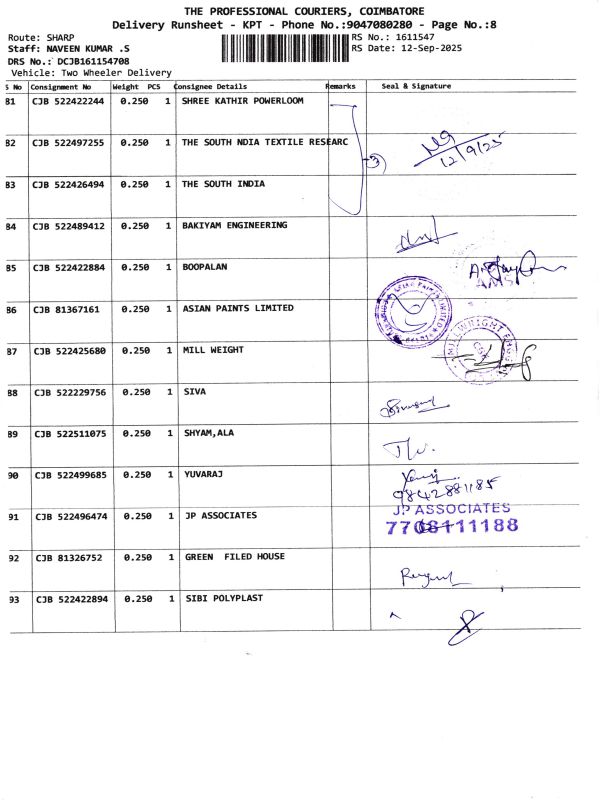 THE PROFESSIONAL COURIERS, COIMBATORE
Delivery Runsheet - KPT - Phone No.:9047080280 - Page No.:8
Route: SHARP
RS No.: 1611547
Staff: NAVEEN KUMAR .S
RS Date: 12-Sep-2025
DRS No.: DCJB161154708
Vehicle: Two Wheeler Delivery
S No Consignment No Weight PCS Consignee Details Remarks Seal & Signature
81 CJB 522422244 0.250 1 SHREE KATHIR POWERLOOM
82 CJB 522497255 0.250 1 THE SOUTH NDIA TEXTILE RESEARC
12/9/25
3
83 CJB 522426494 0.250 1 THE SOUTH INDIA
84 CJB 522489412 0.250 1 BAKIYAM ENGINEERING
85 CJB 522422884 0.250 1 BOOPALAN
AMS
86 CJB 81367161 0.250 1 ASIAN PAINTS LIMITED
87 CJB 522425680 0.250 1 MILL WEIGHT
88 CJB 522229756 0.250 1 SIVA
89 CJB 522511075 0.250 1 SHYAM,ALA
90 CJB 522499685 0.250 1 YUVARAJ
9842881185
91 CJB 522496474 0.250 1 JP ASSOCIATES
JP ASSOCIATES
7708111188
92 CJB 81326752 0.250 1 GREEN FILED HOUSE
93 CJB 522422894 0.250 1 SIBI POLYPLAST